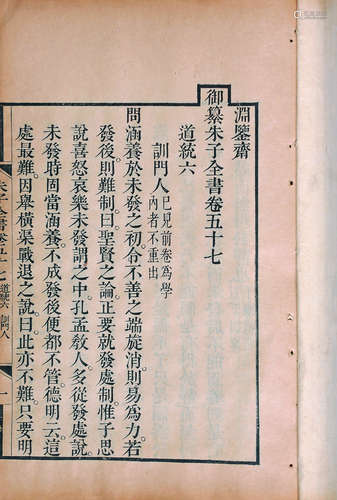 淵鑒齋
御纂朱子全書卷五十七
道統六
訓門人
已見前卷為學
內者不重出
問涵養於未發之初令不善之端旋消則易為力若
發後則難制曰聖賢之論正要就發處制惟子思
說喜怒哀樂未發謂之中孔孟教人多從發處說
未發時固當涵養不成發後便都不管德明云這
處最難因舉橫渠戰退之說曰此亦不難只要明
朱子全書卷五十七
道統六
訓門人
一